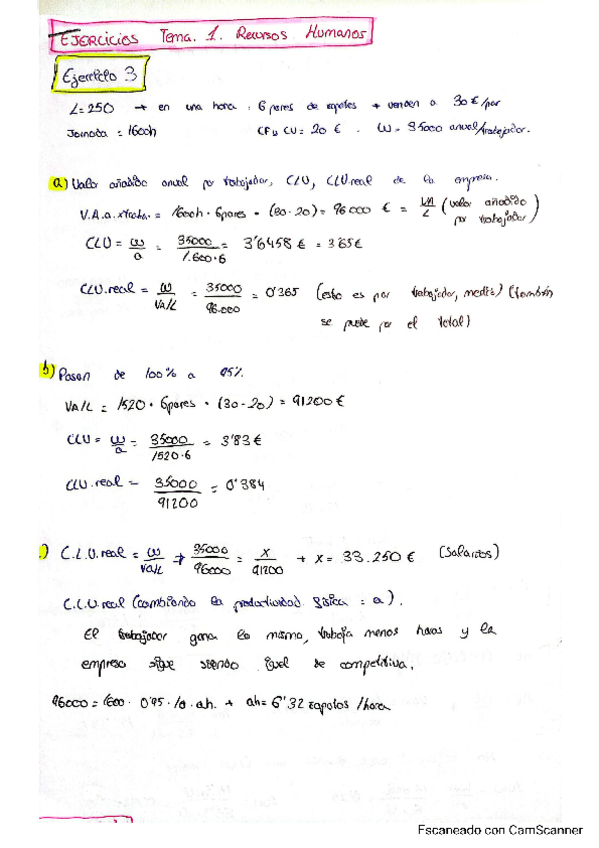 EJERCICIOS Tema. 1. Recursos Humanos
Ejercicio 3
L=250 → en una hora: 6 pares de zapatos → venden a 30€/par
Jornada = 1600h CF y CU = 20 € . W = 35000 anual/trabajador.
a) Valor añadido anual por trabajador, CLU, CLU.real de la empresa.
V.A.a.xtraba. = 1600h · 6pares · (30-20) = 96000 € = VA/L (valor añadido por trabajador)
CLU = w/a = 35000/1.600·6 = 3'6458 € = 3'65€
CLU.real = w/VA/L = 35000/96.000 = 0'365 (esto es por trabajador, media) (también
se puede por el total)
b) Pasan de 100% a 95%
VA/L = 1520 · 6pares · (30-20) = 91200 €
CLU = w/a = 35000/1520·6 = 3'83 €
CLU.real = 35000/91200 = 0'384
) C.L.U.real = w/VA/L → 35000/96000 = x/91200 → x = 33.250 € (Salarios)
C.L.U.real (cambiando la productividad física = a).
El trabajador gana lo mismo, trabaja menos horas y la
empresa sigue siendo igual de competitiva.
96000 = 1600 · 0'95 · 10 · ah. → ah = 6'32 zapatos/hora
Escaneado con CamScanner